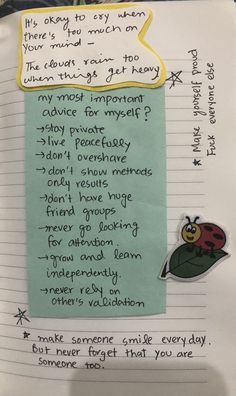 It's okay to cry when
there's too much on
your mind –
The clouds rain too
when things get heavy
my most important
advice for myself?
→ stay private
→ live peacefully
→ don't overshare
→ don't show methods
only results
→ don't have huge
friend groups
→ never go looking
for attention.
→ grow and learn
independently.
→ never rely on
other's validation
★ Make yourself proud
Fuck everyone else
★ make someone smile every day.
But never forget that you are
someone too.